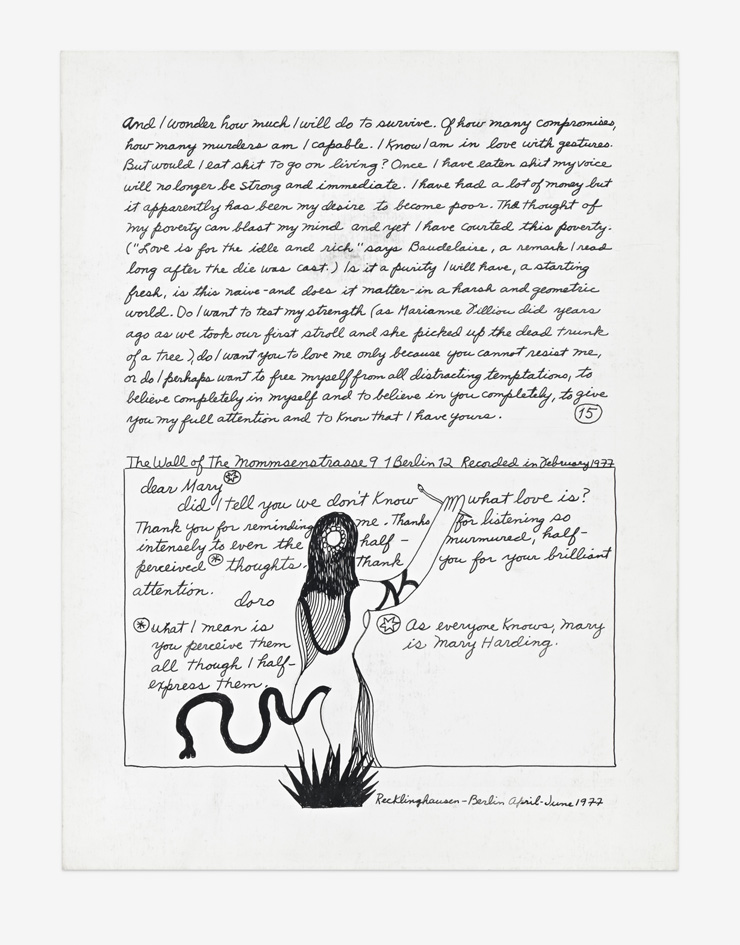 And I wonder how much I will do to survive. Of how many compromises,
how many murders am I capable. I Know I am in love with gestures.
But would I eat shit to go on living? Once I have eaten shit my voice
will no longer be strong and immediate. I have had a lot of money but
it apparently has been my desire to become poor. The thought of
my poverty can blast my mind and yet I have courted this poverty.
("Love is for the idle and rich" says Baudelaire, a remark I read
long after the die was cast.) Is it a purity I will have, a starting
fresh, is this naive - and does it matter - in a harsh and geometric
world. Do I want to test my strength (as Marianne Filliou did years
ago as we took our first stroll and she picked up the dead trunk
of a tree), do I want you to love me only because you cannot resist me,
or do I perhaps want to free myself from all distracting temptations, to
believe completely in myself and to believe in you completely, to give
you my full attention and to Know that I have yours.
15
The Wall of The Mommsenstrasse 9 1 Berlin 12 Recorded in February 1977
dear Mary
did I tell you we don't Know what love is?
Thank you for reminding me. Thanks for listening so
intensely to even the half - murmured, half-
perceived thoughts. Thank you for your brilliant
attention.
doro
What I mean is
you perceive them
all though I half-
express them.
As everyone Knows, Mary
is Mary Harding.
Recklinghausen - Berlin April - June 1977